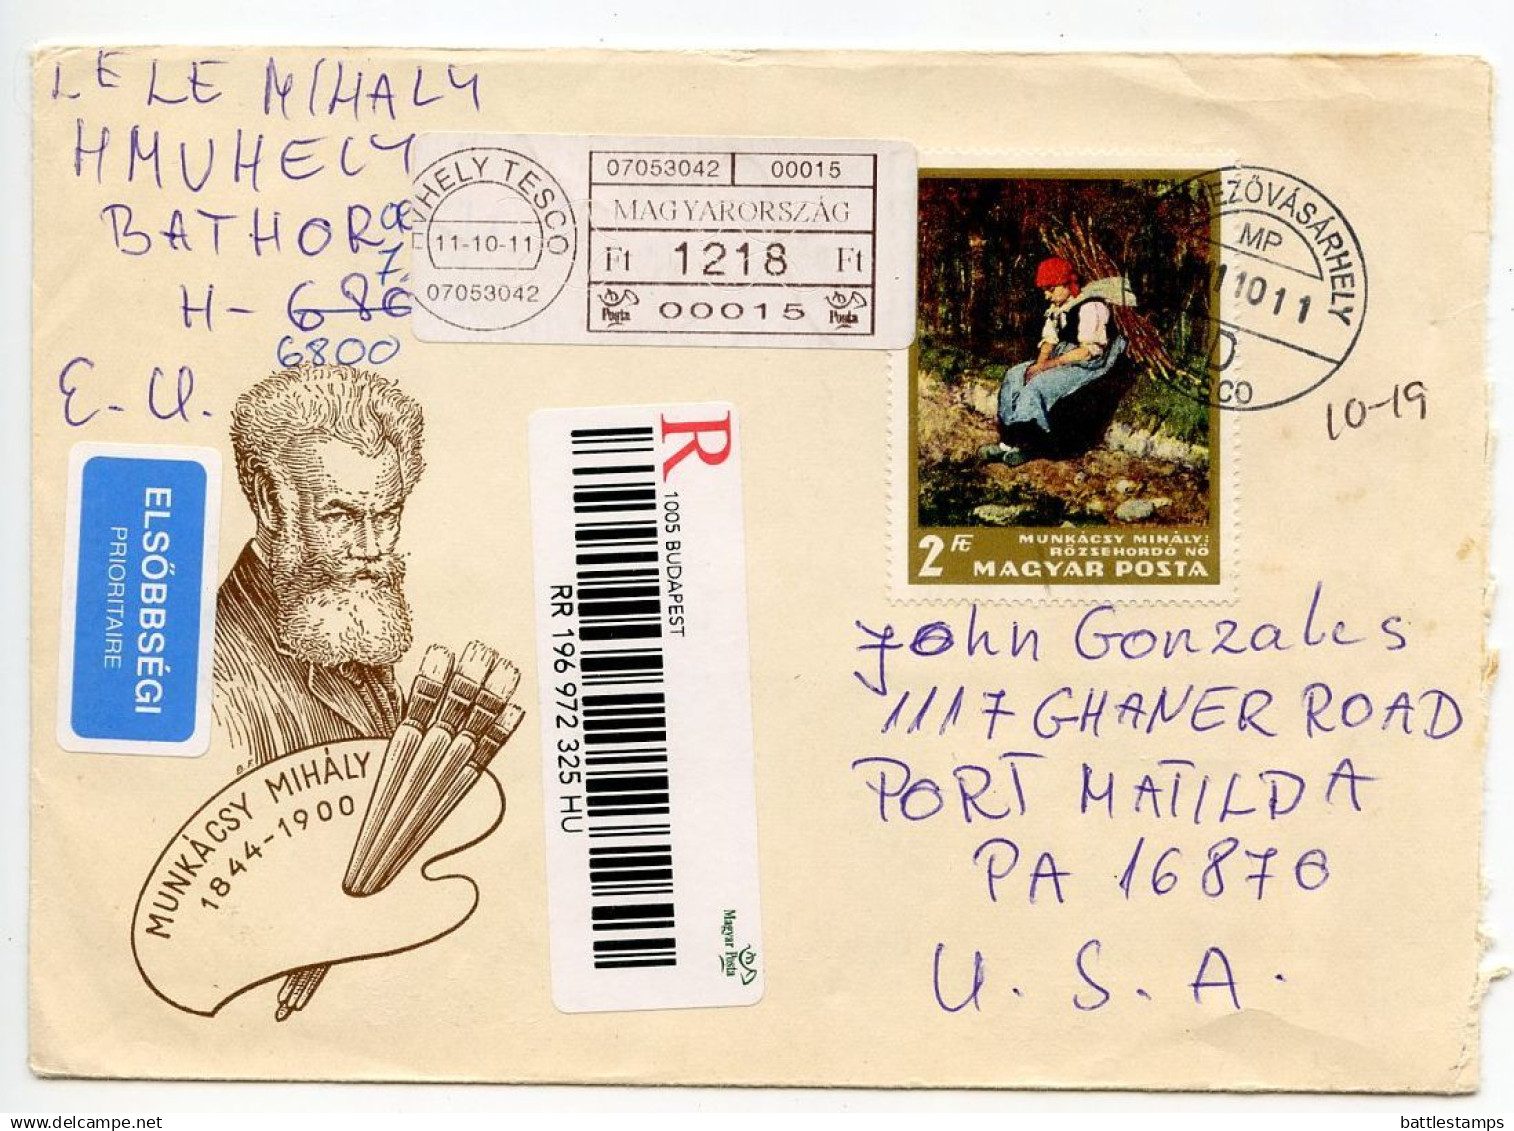 LELE MIHALY
HMVHELY
BATHORA
7.
H- 680
6800
E. U.
VHELY TESCO
11-10-11
07053042
07053042 00015
MAGYARORSZÁG
Ft 1218 Ft
Posta 00015 Posta
EZŐVÁSÁRHELY
MP
11011
D
SCO
10-19
2 Ft
MUNKÁCSY MIHÁLY:
RŐZSEHORDÓ NŐ
MAGYAR POSTA
ELSŐBBSÉGI
PRIORITAIRE
R
1005 BUDAPEST
RR 196 972 325 HU
Magyar Posta
B.F.
MUNKÁCSY MIHÁLY
1844-1900
John Gonzales
1117 GHANER ROAD
PORT MATILDA
PA 16870
U. S. A.
battlestamps